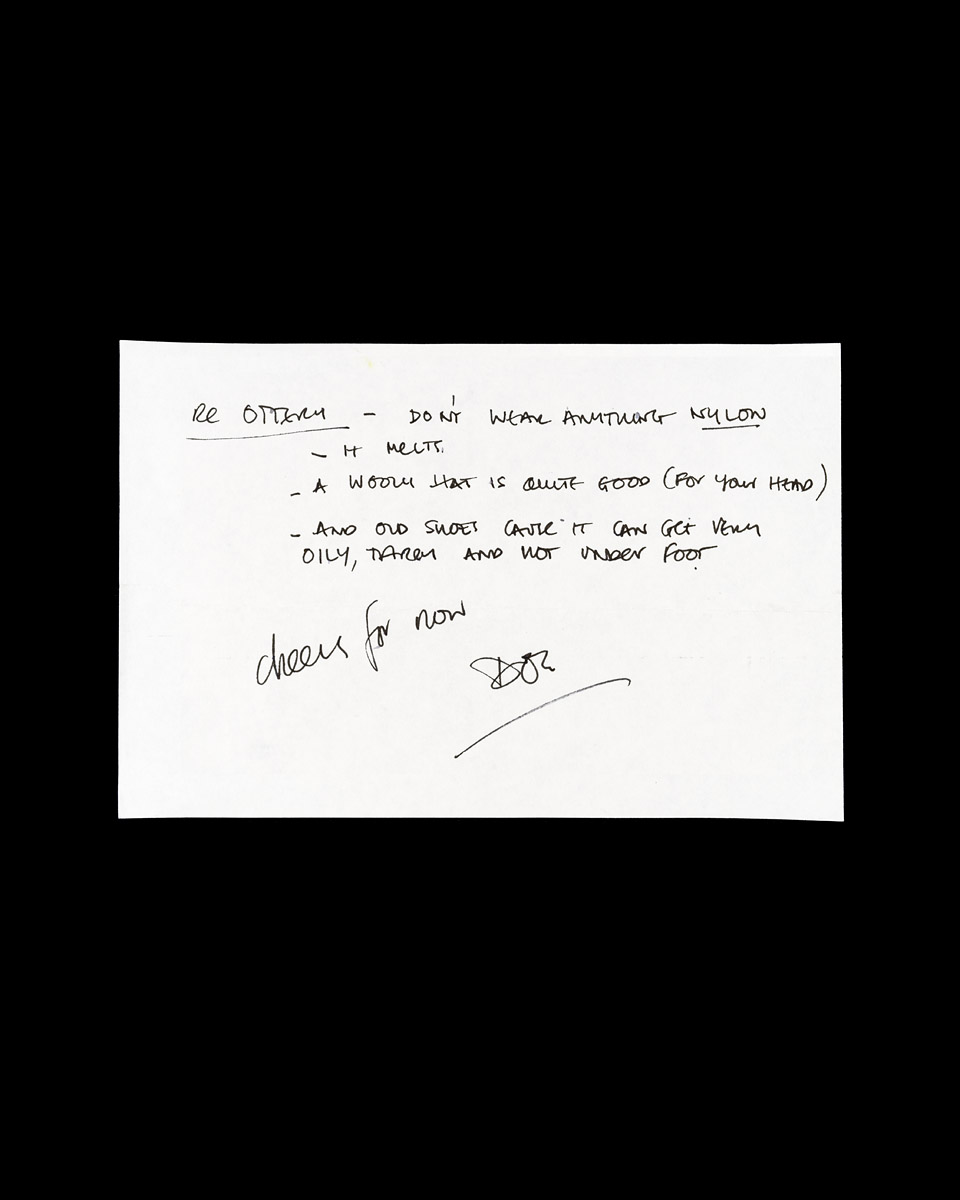 RE OTTERY - DON'T WEAR ANYTHING NYLON
- IT MELTS.
- A WOOLY HAT IS QUITE GOOD (FOR YOUR HEAD)
- AND OLD SHOES CAUSE IT CAN GET VERY
OILY, TARRY AND HOT UNDER FOOT
cheers for now